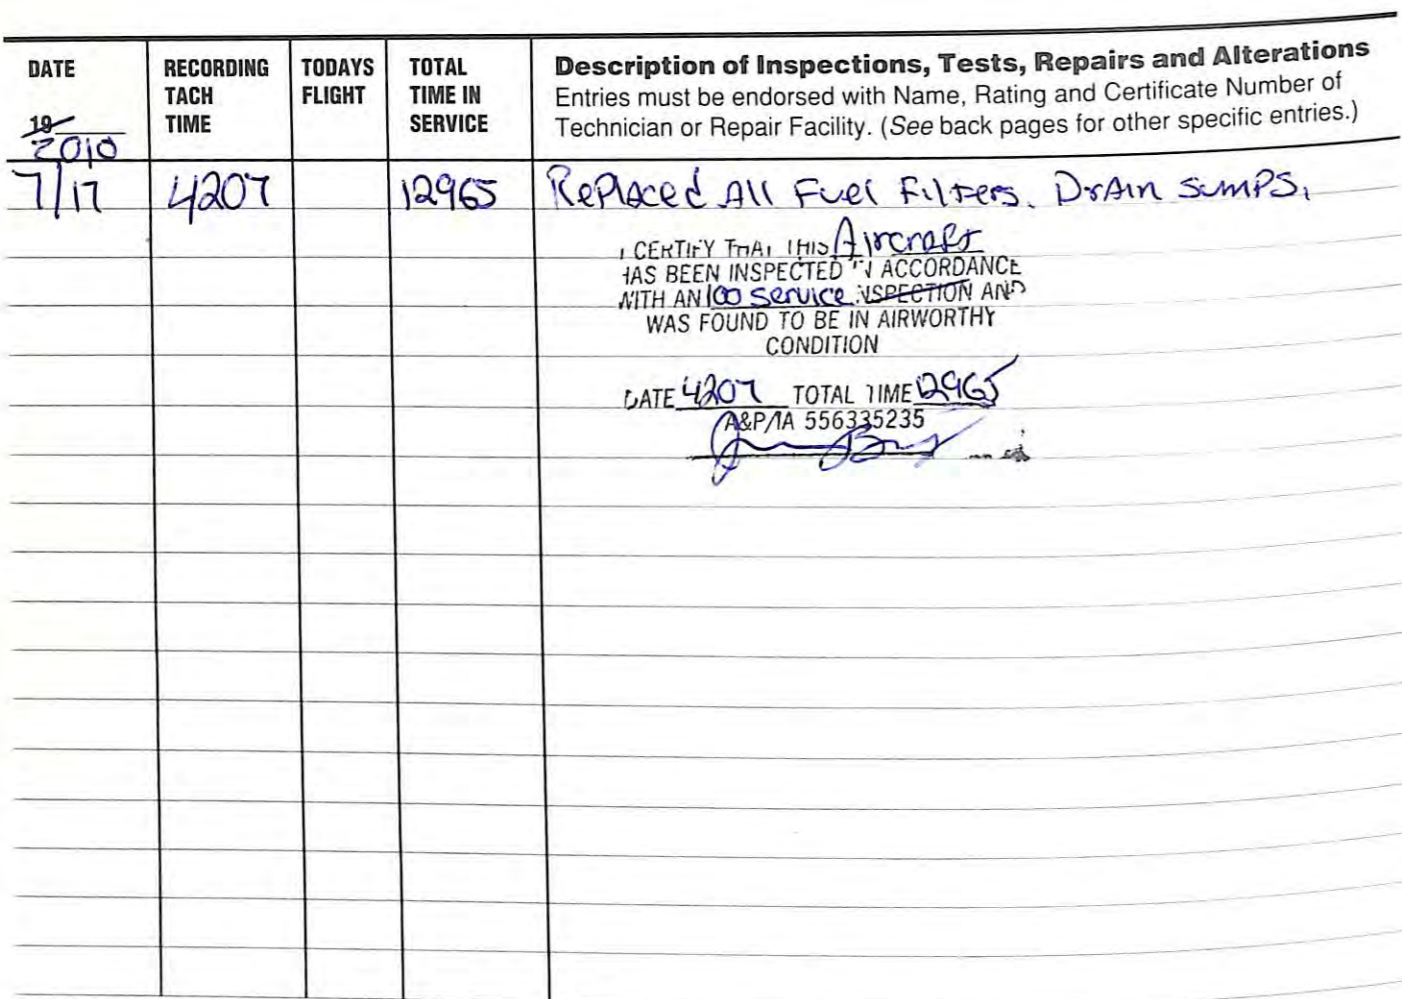 DATE
19
2010
RECORDING
TACH
TIME
TODAYS
FLIGHT
TOTAL
TIME IN
SERVICE
Description of Inspections, Tests, Repairs and Alterations
Entries must be endorsed with Name, Rating and Certificate Number of
Technician or Repair Facility. (See back pages for other specific entries.)
7/17 4207 12965 Replaced All Fuel Filters. Drain sumps.
I CERTIFY THAT THIS Aircraft
HAS BEEN INSPECTED IN ACCORDANCE
WITH AN 100 service INSPECTION AND
WAS FOUND TO BE IN AIRWORTHY
CONDITION
DATE 4207 TOTAL TIME 12965
A&P/IA 556335235